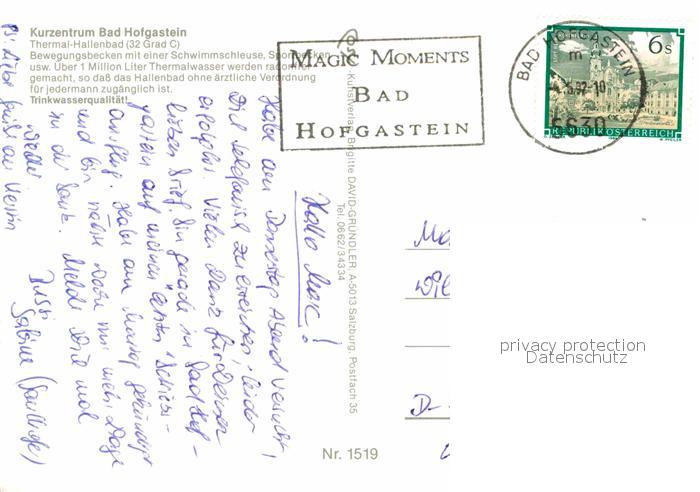 Kurzentrum Bad Hofgastein
Thermal-Hallenbad (32 Grad C)
Bewegungsbecken mit einer Schwimmschleuse, Sportbecken
usw. Über 1 Million Liter Thermalwasser werden
gemacht, so daß das Hallenbad ohne ärztliche Verordnung
für jedermann zugänglich ist.
Trinkwasserqualität!
MAGIC MOMENTS
BAD
HOFGASTEIN
BAD HOFGASTEIN
m
.92-10
5630
6s
REPUBLIK ÖSTERREICH
Kunstverlag Brigitte DAVID-GRÜNDLER A-5013 Salzburg, Postfach 35
Tel. 0662/34334
Hallo Marc!
Habe am Donnerstag Abend versucht,
Dich telefonisch zu erreichen, leider
erfolglos. Vielen Dank für Deinen
lieben Brief. Bin gerade in Bad Hof-
gastein auf meinem letzten
ausflug. Habe am Montag gekündigt
und bin nur mehr Tage
in der Bank. Melde Dich mal
wieder.
Bussi
Sabine
PS: Liebe
Grüße an
Ma
Wil
D-
privacy protection
Datenschutz
Nr. 1519